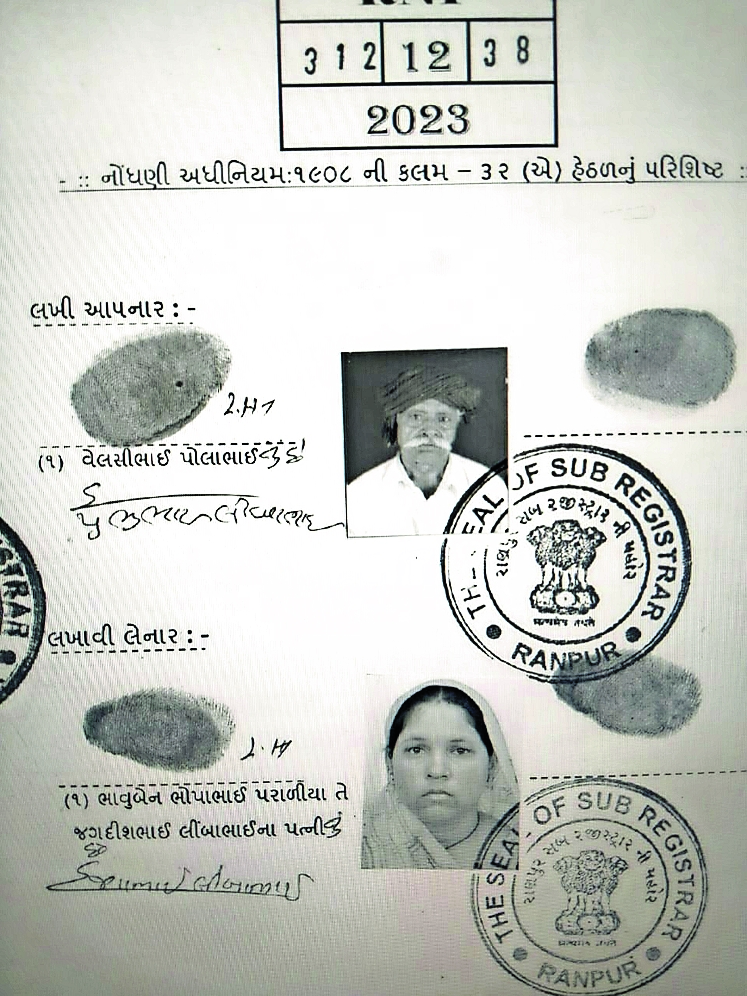 RNP
312 12 38
2023
- :: નોંધણી અધીનિયમ:૧૯૦૮ ની કલમ – ૩૨ (એ) હેઠળનું પરિશિષ્ટ ::
લખી આપનાર : -
(૧) વેલસીભાઈ પોલાભાઈ
THE SEAL OF SUB REGISTRAR
રાણપુર સબ રજીસ્ટ્રાર ની મહોર
सत्यमेव जयते
RANPUR
STRAR
લખાવી લેનાર : -
(૧) ભાવુબેન ભોપાભાઈ પરાળીયા તે
જગદીશભાઈ લીંબાભાઈના પત્ની
THE SEAL OF SUB REGISTRAR
રાણપુર સબ રજીસ્ટ્રાર ની મહોર
सत्यमेव जयते
RANPUR